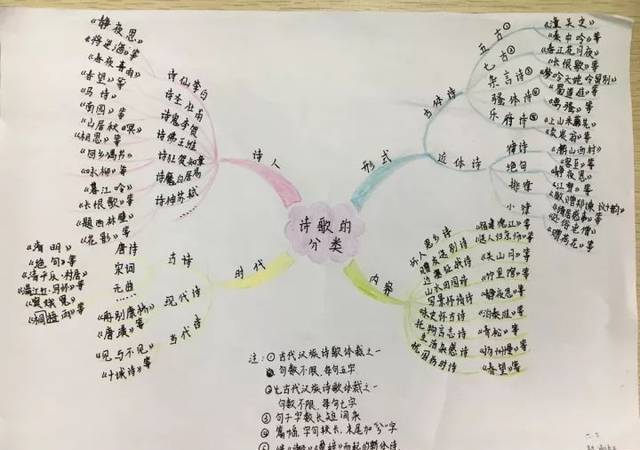 诗歌的
分类
诗人
诗仙李白
《静夜思》
《将进酒》等
诗圣杜甫
《春夜喜雨》
《春望》等
诗鬼李贺
《马诗》
《南园》等
诗佛王维
《山居秋暝》
《相思》等
诗狂贺知章
《回乡偶书》
《咏柳》等
诗魔白居易
《暮江吟》
《长恨歌》等
诗神苏轼
《题西林壁》
《花影》等
时代
古诗
唐诗
《清明》
《绝句》等
宋词
《清平乐·村居》
《满江红·写怀》等
元曲
现代诗
《再别康桥》
《唐璜》等
当代诗
《见与不见》
《十城诗》等
形式
古体诗
五古①
《潼关吏》
《秦中吟》等
七古②
《春江花月夜》
《长恨歌》等
杂言诗③
《梦游天姥吟留别》
《蜀道难》等
骚体诗④
《离骚》等
乐府诗⑤
《上山采蘼芜》
近体诗
律诗
《游山西村》
绝句
《静夜思》
《江雪》等
排律
小律
内容
山水田园诗
《竹里馆》等
写景抒情诗
《静夜思》等
咏史怀古诗
《泊秦淮》等
托物言志诗
《青松》等
《扬州慢》等
《春望》等
注：①古代汉族诗歌体裁之一
句数不限，每句五字
②也古代汉族诗歌体裁之一
句数不限，每句七字
③句子字数长短间杂
④篇幅、字句较长，末尾加“兮”字